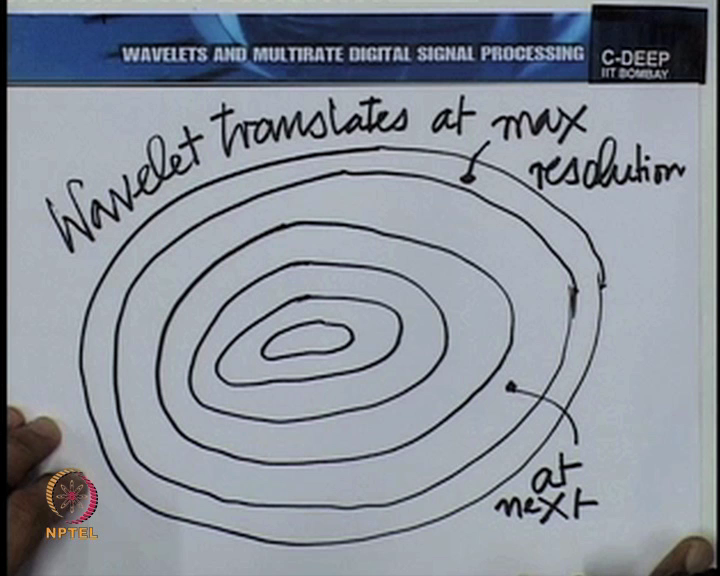 WAVELETS AND MULTIRATE DIGITAL SIGNAL PROCESSING
C-DEEP
IIT BOMBAY
Wavelet translates at max
resolution
at
next
NPTEL